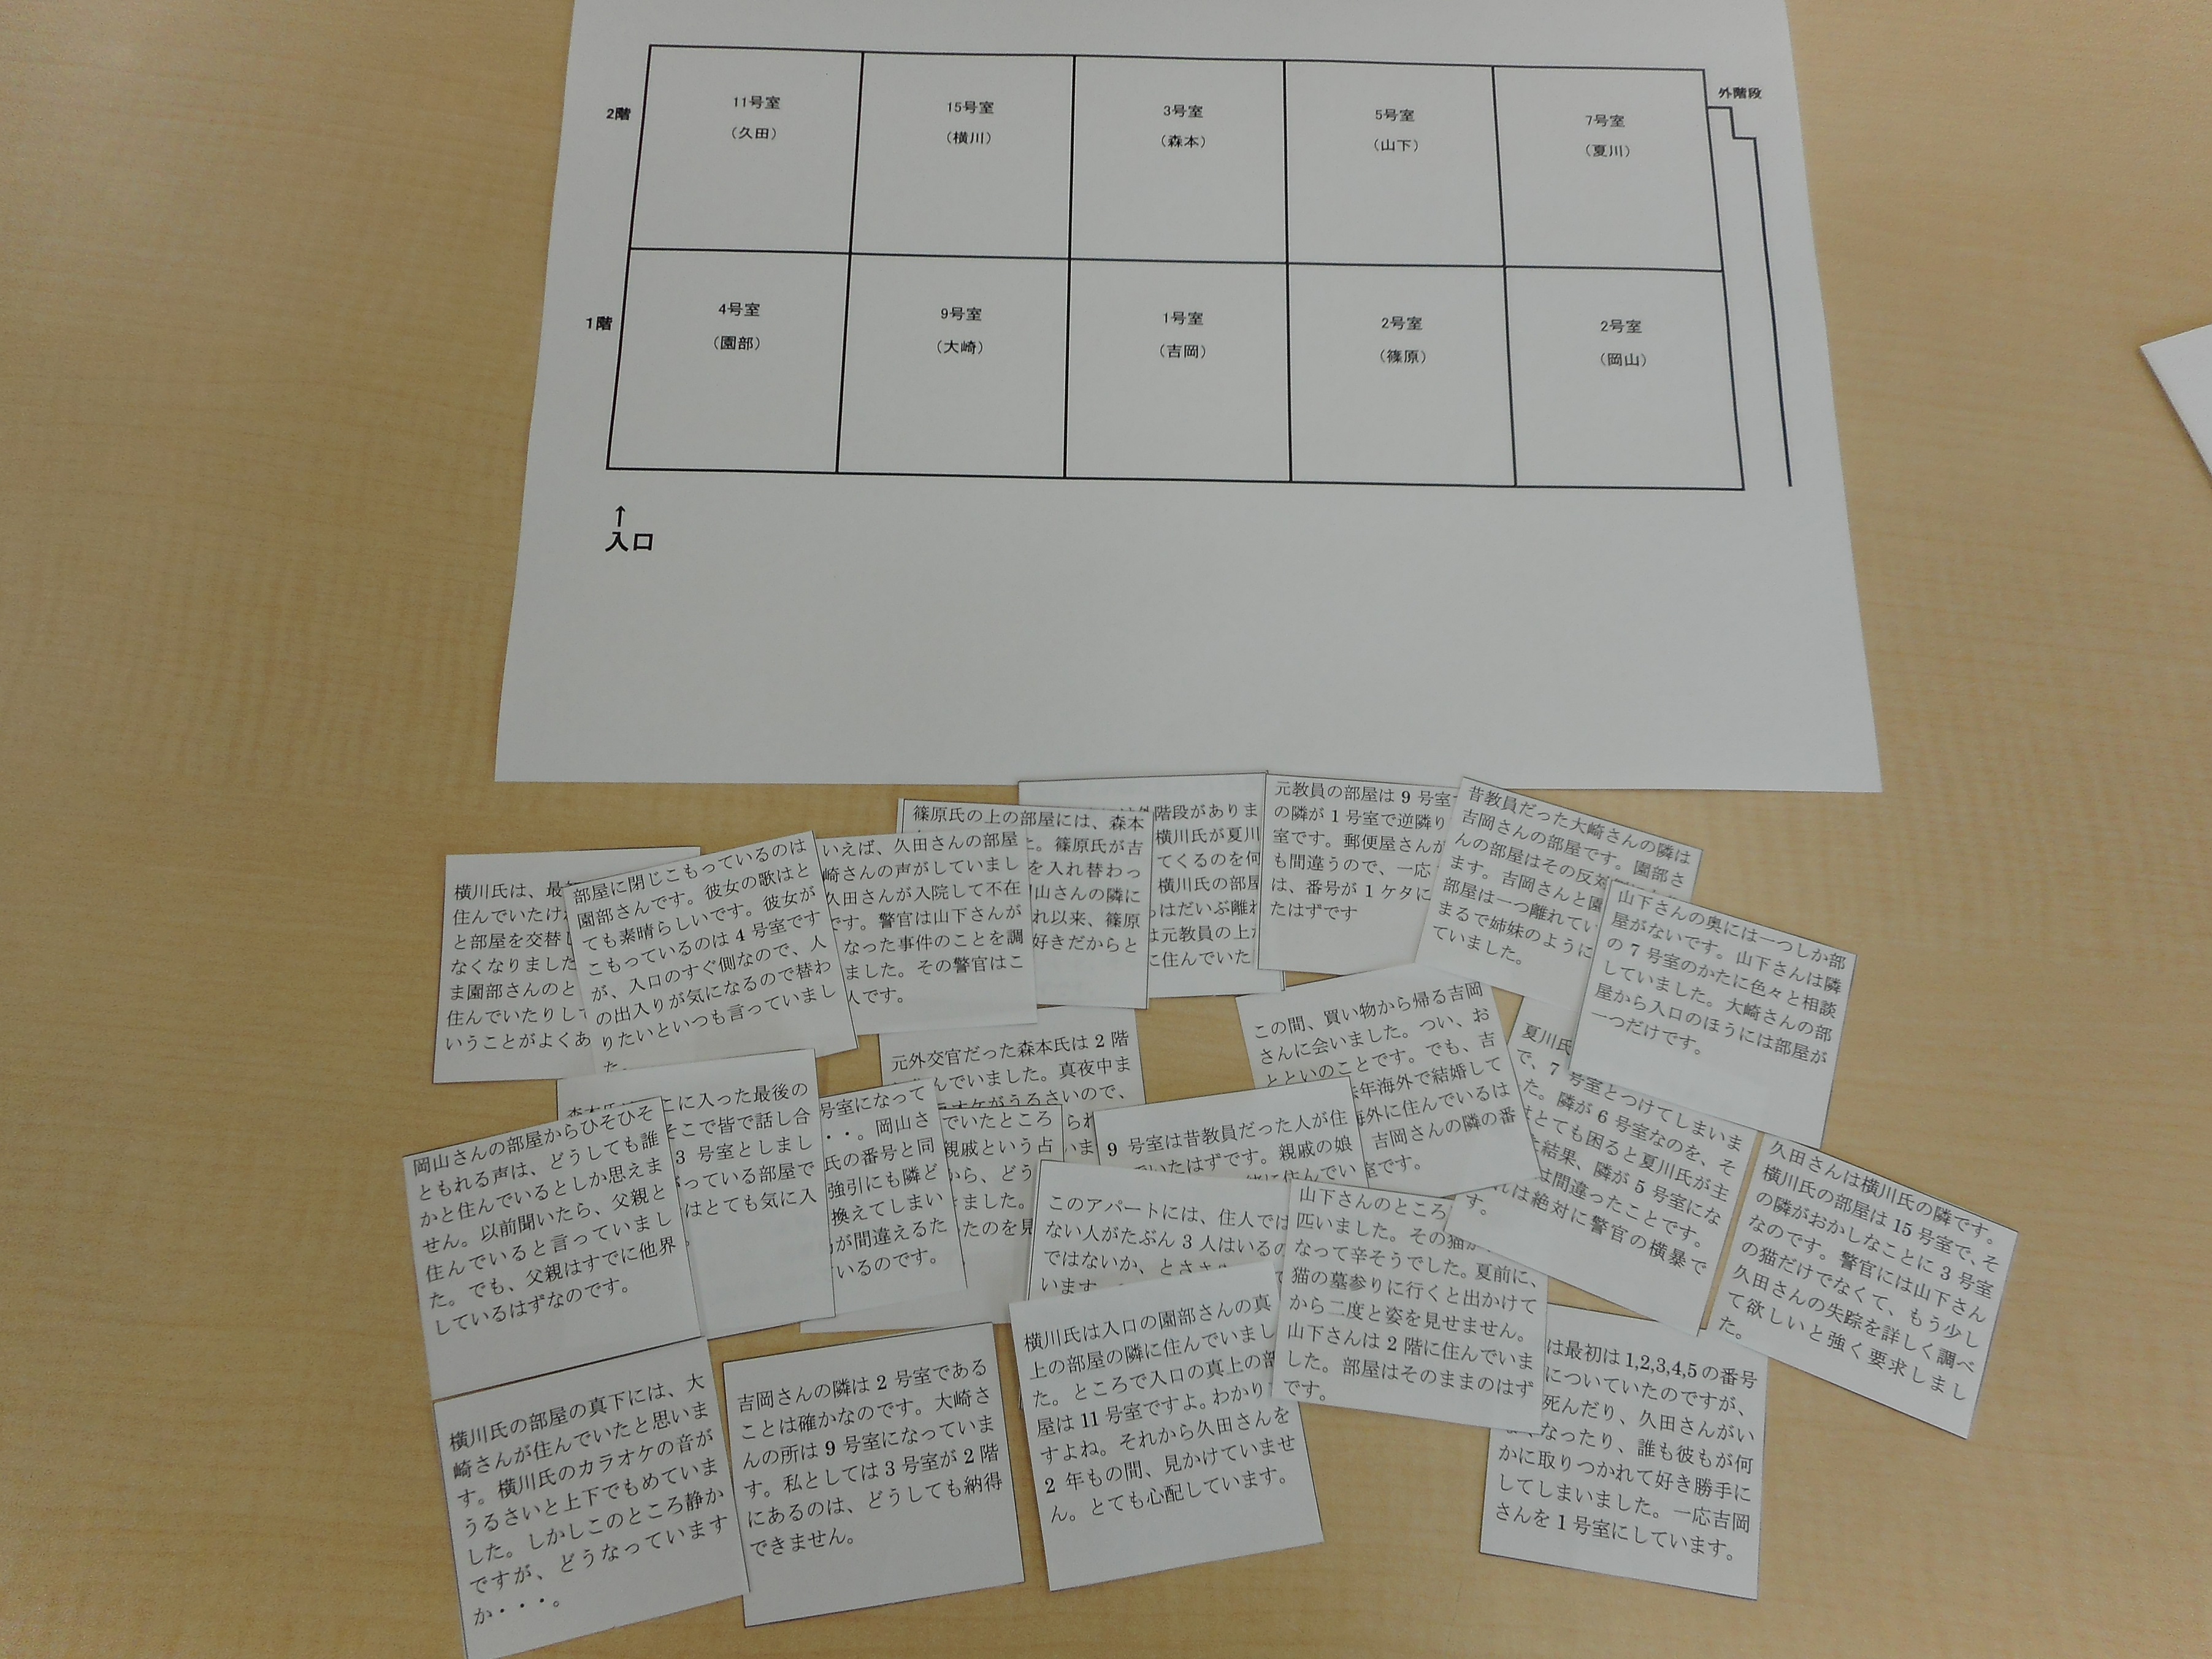 2階
11号室
(久田)
15号室
(横川)
3号室
(森本)
5号室
(山下)
7号室
(夏川)
外階段
1階
4号室
(園部)
9号室
(大崎)
1号室
(吉岡)
2号室
(篠原)
2号室
(岡山)
↑
入口
横川氏は、最
住んでいたけ
と部屋を交替し
なくなりました
ま園部さんのと
住んでいたりして
いうことがよくあ
部屋に閉じこもっているのは
園部さんです。彼女の歌はと
ても素晴らしいです。彼女が
こもっているのは 4 号室です
が、入口のすぐ側なので、人
の出入りが気になるので替わ
りたいといつも言っていまし
た。
いえば、久田さんの部屋
崎さんの声がしていまし
久田さんが入院して不在
です。警官は山下さんが
なった事件のことを調
ました。その警官はこ
人です。
篠原氏の上の部屋には、森本
。篠原氏が吉
を入れ替わっ
山さんの隣に
れ以来、篠原
好きだからと
階段がありま
横川氏が夏川
てくるのを何
横川氏の部屋
はだいぶ離れ
は元教員の上
に住んでいた
元教員の部屋は 9 号室
の隣が 1 号室で逆隣り
室です。郵便屋さんが
も間違うので、一応
は、番号が 1 ケタに
たはずです
昔教員だった大崎さんの隣は
吉岡さんの部屋です。園部さ
んの部屋はその反対
ます。吉岡さんと園
部屋は一つ離れてい
まるで姉妹のように
ていました。
山下さんの奥には一つしか部
屋がないです。山下さんは隣
の 7 号室のかたに色々と相談
していました。大崎さんの部
屋から入口のほうには部屋が
一つだけです。
元外交官だった森本氏は 2 階
んでいました。真夜中ま
オケがうるさいので、
この間、買い物から帰る吉岡
さんに会いました。つい、お
とといのことです。でも、吉
年海外で結婚して
海外に住んでいるは
吉岡さんの隣の番
室です。
夏川氏
で、7 号室とつけてしまいま
た。隣が 6 号室なのを、そ
はとても困ると夏川氏が主
結果、隣が 5 号室にな
は間違ったことです。
れは絶対に警官の横暴で
す。
岡山さんの部屋からひそひそ
ともれる声は、どうしても誰
かと住んでいるとしか思えま
せん。以前聞いたら、父親と
住んでいると言っていまし
た。でも、父親はすでに他界
しているはずなのです。
こに入った最後の
そこで皆で話し合
3 号室としまし
っている部屋で
はとても気に入
号室になって
・・。岡山さ
氏の番号と同
強引にも隣ど
換えてしまい
が間違えるた
いるのです。
でいたところ
親戚という占
から、どう
ました。
たのを見
9 号室は昔教員だった人が住
でいたはずです。親戚の娘
緒に住んでい
このアパートには、住人では
ない人がたぶん 3 人はいるの
ではないか、とささ
います。
山下さんのところ
匹いました。その猫が
なって辛そうでした。夏前に、
猫の墓参りに行くと出かけて
から二度と姿を見せません。
山下さんは 2 階に住んでいま
した。部屋はそのままのはず
です。
久田さんは横川氏の隣です。
横川氏の部屋は 15 号室で、そ
の隣がおかしなことに 3 号室
なのです。警官には山下さん
の猫だけでなくて、もう少し
久田さんの失踪を詳しく調べ
て欲しいと強く要求しまし
た。
横川氏の部屋の真下には、大
崎さんが住んでいたと思いま
す。横川氏のカラオケの音が
うるさいと上下でもめていま
した。しかしこのところ静か
ですが、どうなっています
か・・・。
吉岡さんの隣は 2 号室である
ことは確かなのです。大崎さ
んの所は 9 号室になっていま
す。私としては 3 号室が 2 階
にあるのは、どうしても納得
できません。
横川氏は入口の園部さんの真
上の部屋の隣に住んでいまし
た。ところで入口の真上の部
屋は 11 号室ですよ。わかりま
すよね。それから久田さんを
2 年もの間、見かけていませ
ん。とても心配しています。
は最初は 1,2,3,4,5 の番号
についていたのですが、
死んだり、久田さんがい
なったり、誰も彼もが何
かに取りつかれて好き勝手に
してしまいました。一応吉岡
さんを 1 号室にしています。